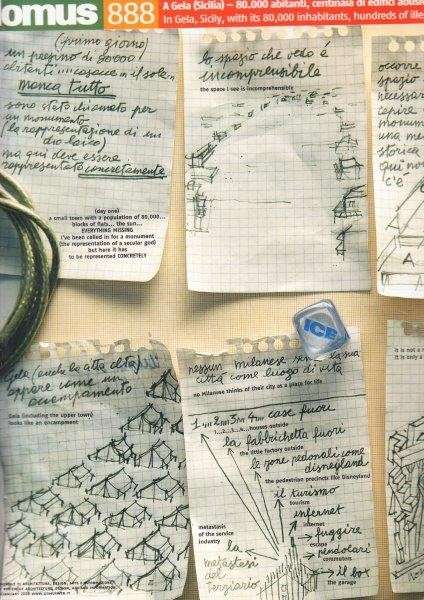 omus 888
A Gela (Sicilia) – 80.000 abitanti, centinaia di edifici abus
In Gela, Sicily, with its 80,000 inhabitants, hundreds of ille
(primo giorno)
un paesino di 80000
abitanti ..... casacce ... il sole ...
manca tutto
sono stato chiamato per
un monumento
(la rappresentazione di un
dio laico)
ma qui deve essere
rappresentato concretamente
(day one)
a small town with a population of 80,000...
blocks of flats... the sun...
EVERYTHING MISSING
i've been called in for a monument
(the representation of a secular god)
but here it has
to be represented CONCRETELY
lo spazio che vedo è
incomprensibile
the space I see is incomprehensible
occorre
spazio
necessar
capire
monum
una me
storica
qui non
c'è
A
Gela (anche la città alta)
appare come un
accampamento
Gela (including the upper town)
looks like an encampment
ICE
nessun milanese sua
città come luogo di vita
no Milanese thinks of their city as a place for life
1...2...3...4... case fuori
1...2...3...4... houses outside
la fabbrichetta fuori
the little factory outside
le zone pedonali come
disneyland
the pedestrian precincts like Disneyland
il turismo
tourism
internet
internet
fuggire
escape
pendolari
commuters
il box
the garage
metastasis
of the service
industry
la
metastasi
del
terziario
it is not a
it is only a